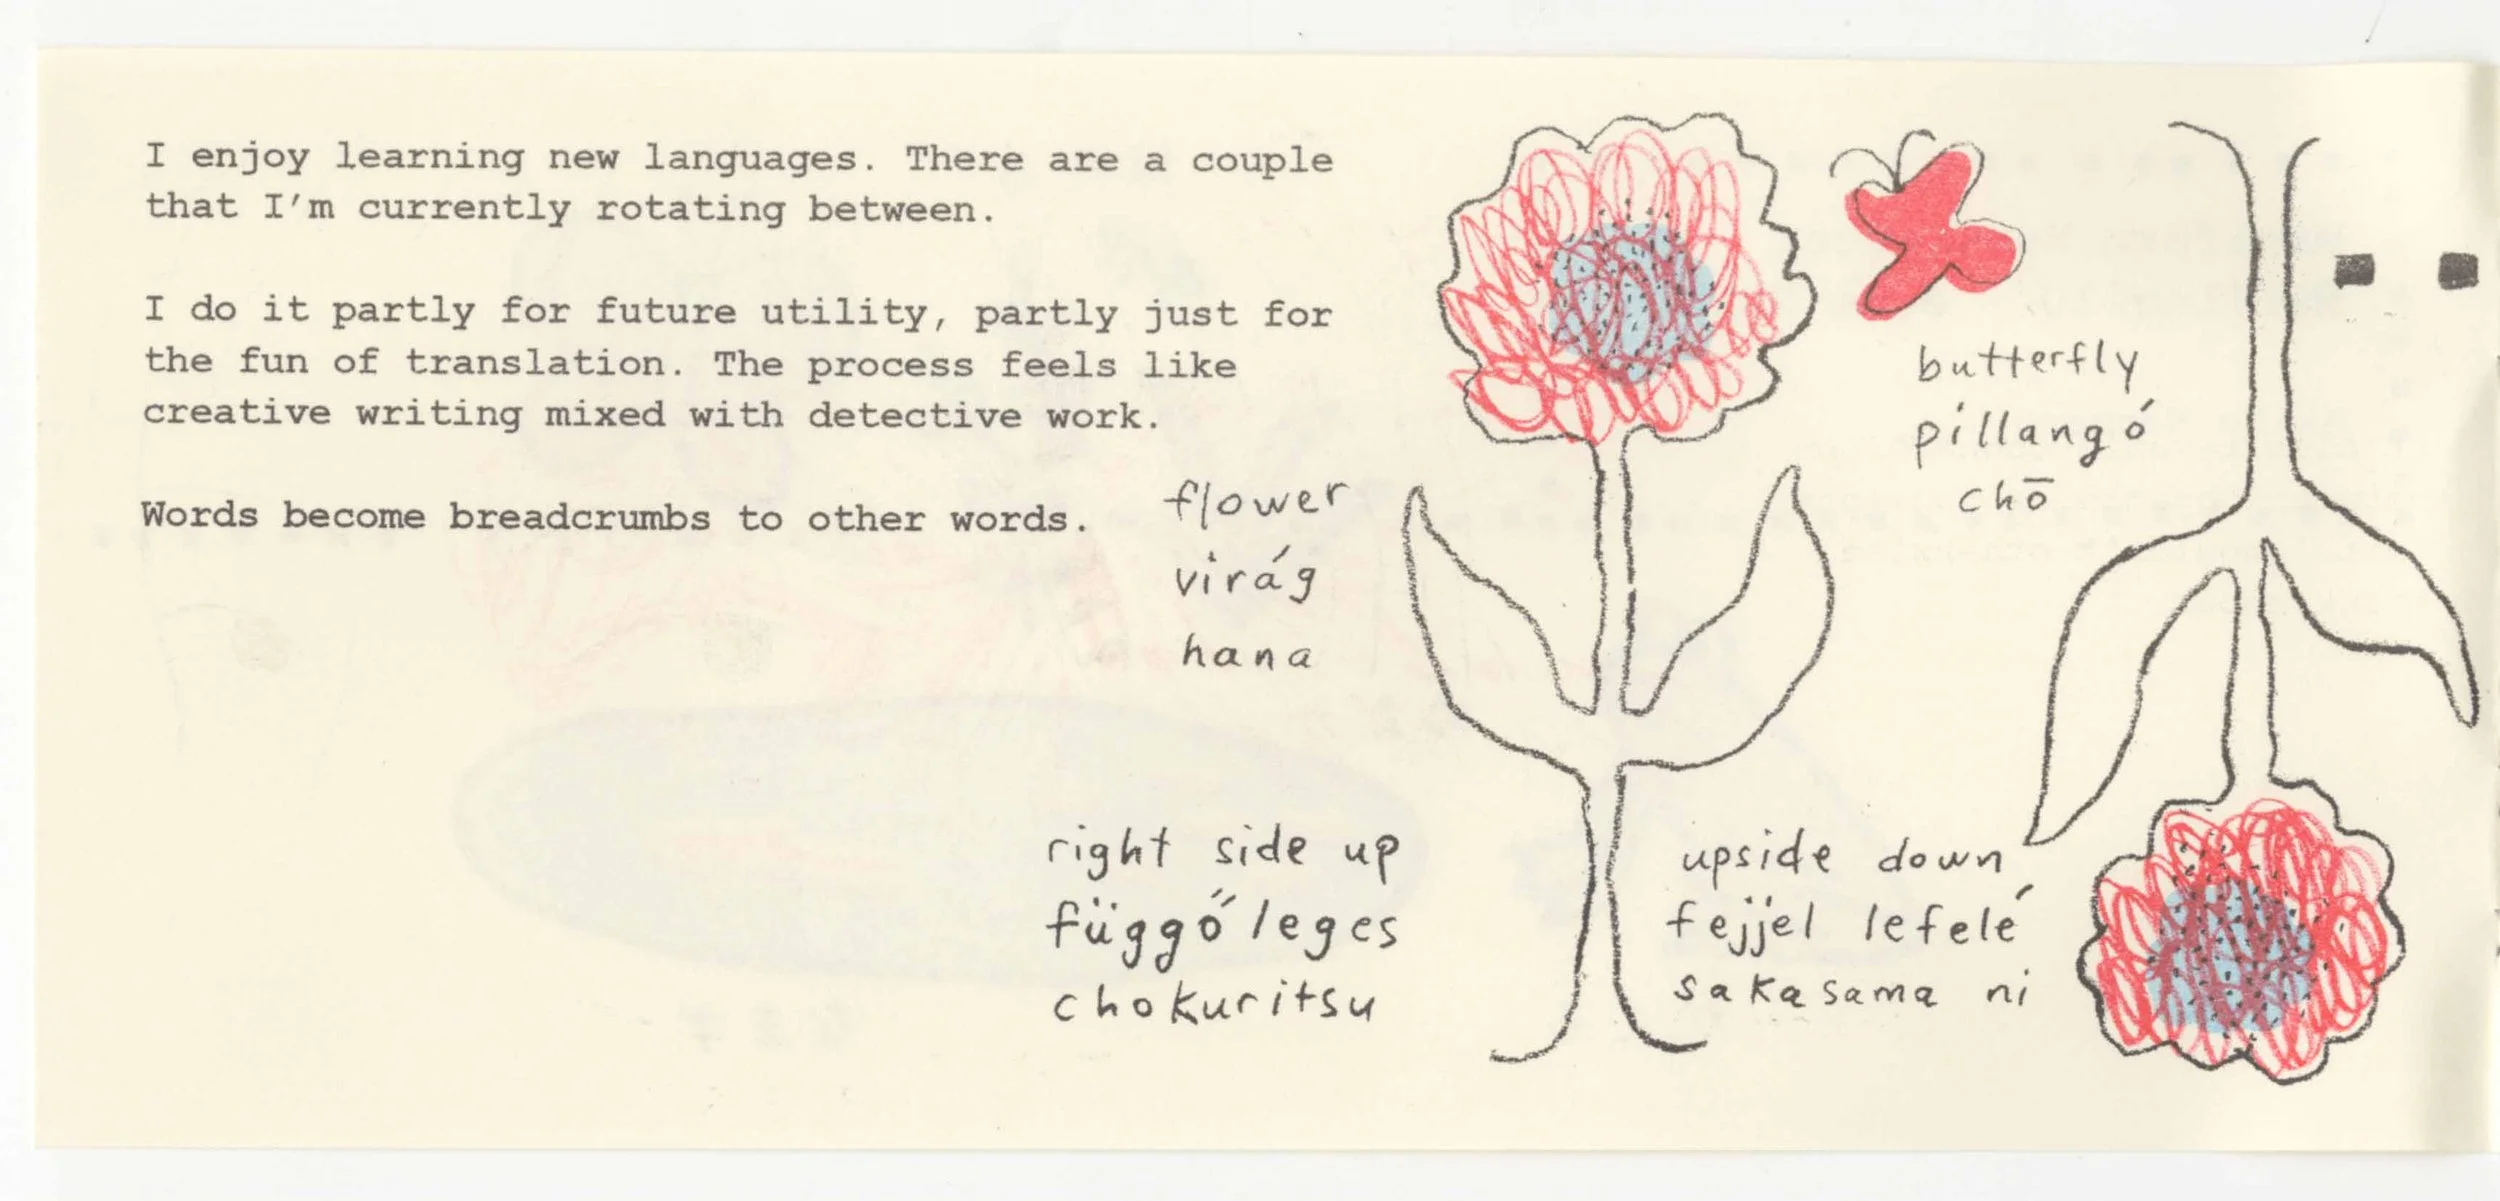 I enjoy learning new languages. There are a couple
that I'm currently rotating between.
I do it partly for future utility, partly just for
the fun of translation. The process feels like
creative writing mixed with detective work.
Words become breadcrumbs to other words.
flower
virág
hana
butterfly
pillangó
chō
right side up
függőleges
chokuritsu
upside down
fejjel lefelé
sakasama ni